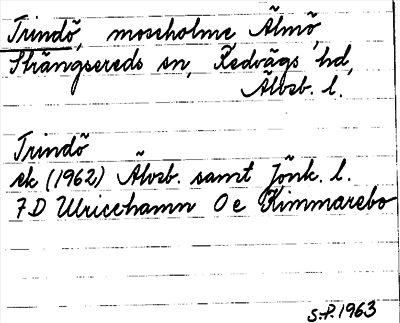 Trindö, moseholme Älmö,
Strängsereds sn, Redvägs hd,
Älvsb. l.
Trindö
ek (1962) Älvsb. samt Jönk. l.
7D Ulricehamn 0e Kimmarebo
S.P. 1963